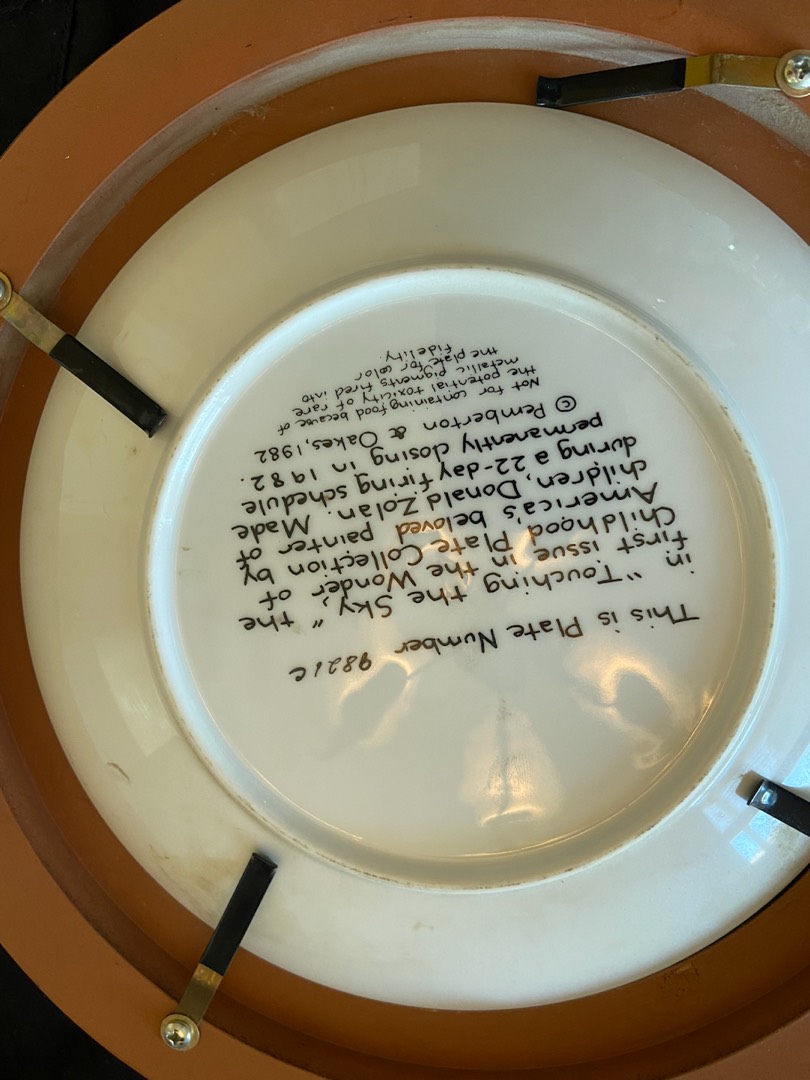 This is Plate Number 9821C
in "Touching the Sky," the
first issue in the Wonder of
Childhood Plate Collection by
America's beloved painter of
children, Donald Zolan. Made
during a 22-day firing schedule
permanently closing in 1982.
© Pemberton & Oakes, 1982
Not for containing food because of
the potential toxicity of rare
metallic pigments fired into
the plate for color
fidelity.